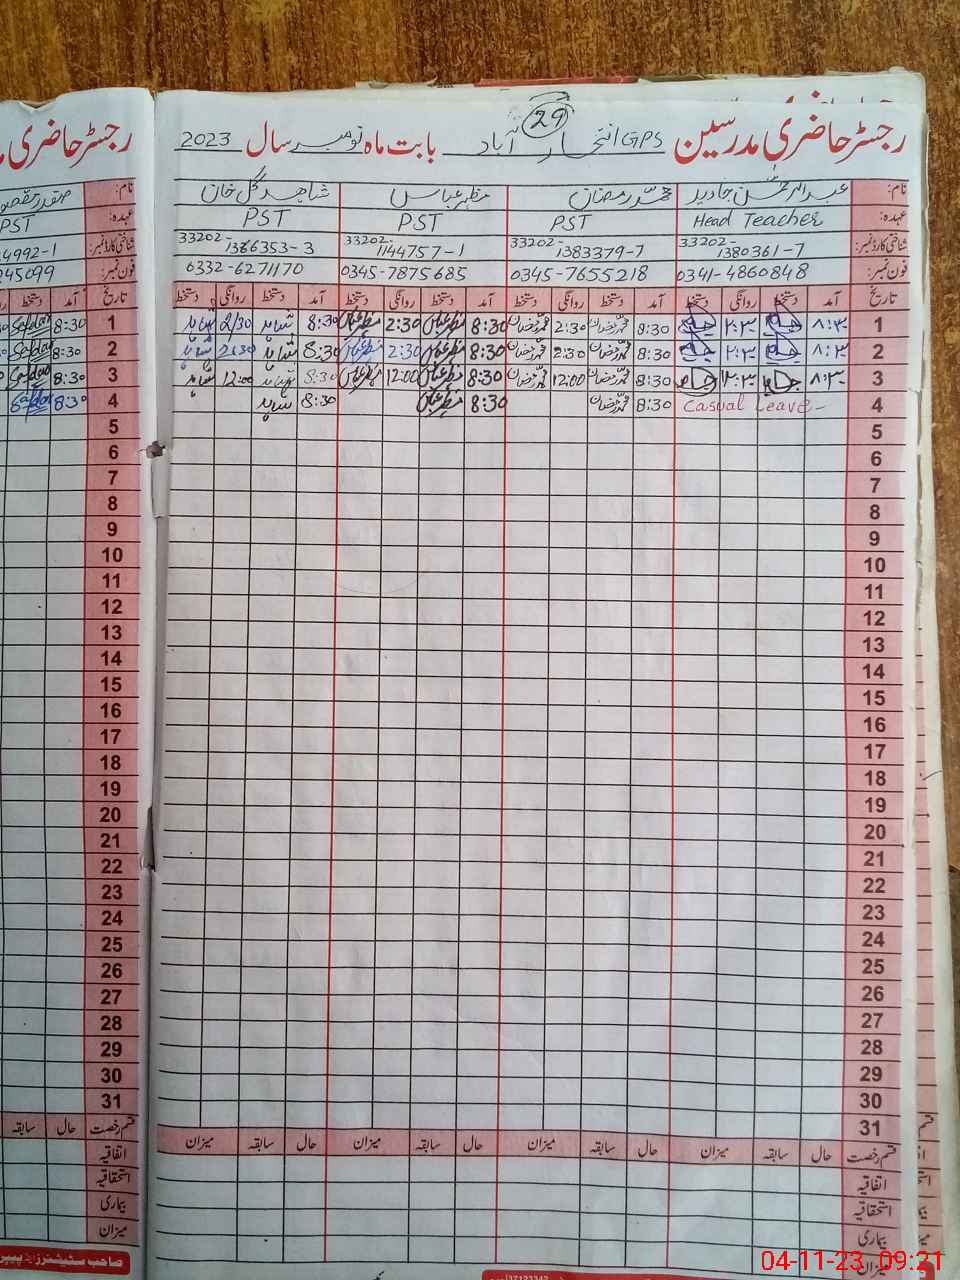 رجسٹر حاضری مدرسین GPS افتخار آباد بابت ماہ نومبر سال 2023
29
نام: عبدالرحمٰن جاوید محمد رمضان مظہر عباس شاہد گل خان
عہدہ: Head Teacher PST PST PST
شناختی کارڈ نمبر: 33202-1380361-7 33202-1383379-7 33202-1144757-1 33202-1366353-3
فون نمبر: 0341-4860848 0345-7655218 0345-7875685 0332-6271170
تاریخ آمد دستخط روانگی دستخط آمد دستخط روانگی دستخط آمد دستخط روانگی دستخط آمد دستخط روانگی دستخط
1 ۸:۳۰ ۲:۳۰ 8:30 محمد رمضان 2:30 محمد رمضان 8:30 مظہر عباس 2:30 مظہر عباس 8:30 شاہد 2:30 شاہد
2 ۸:۳۰ ۲:۳۰ 8:30 محمد رمضان 2:30 محمد رمضان 8:30 مظہر عباس 2:30 مظہر عباس 8:30 شاہد 2:30 شاہد
3 ۸:۳۰ ۱۲:۳۰ 8:30 محمد رمضان 12:00 محمد رمضان 8:30 مظہر عباس 12:00 مظہر عباس 8:30 شاہد 12:00 شاہد
4 Casual Leave- 8:30 محمد رمضان 8:30 مظہر عباس 8:30 شاہد
5
6
7
8
9
10
11
12
13
14
15
16
17
18
19
20
21
22
23
24
25
26
27
28
29
30
31
قسم رخصت حال سابقہ میزان حال سابقہ میزان حال سابقہ میزان حال سابقہ میزان
اتفاقیہ
استحقاقیہ
بیماری
میزان
رجسٹر حاضری
PST
4992-1
45099
تاریخ آمد دستخط
1 8:30 Safdar
2 8:30 Safdar
3 8:30 Safdar
4 8:30 Safdar
5
6
7
8
9
10
11
12
13
14
15
16
17
18
19
20
21
22
23
24
25
26
27
28
29
30
31
قسم رخصت حال سابقہ
اتفاقیہ
استحقاقیہ
بیماری
میزان
صاحب سٹیشنرز اینڈ پیپر
04-11-23 09:21